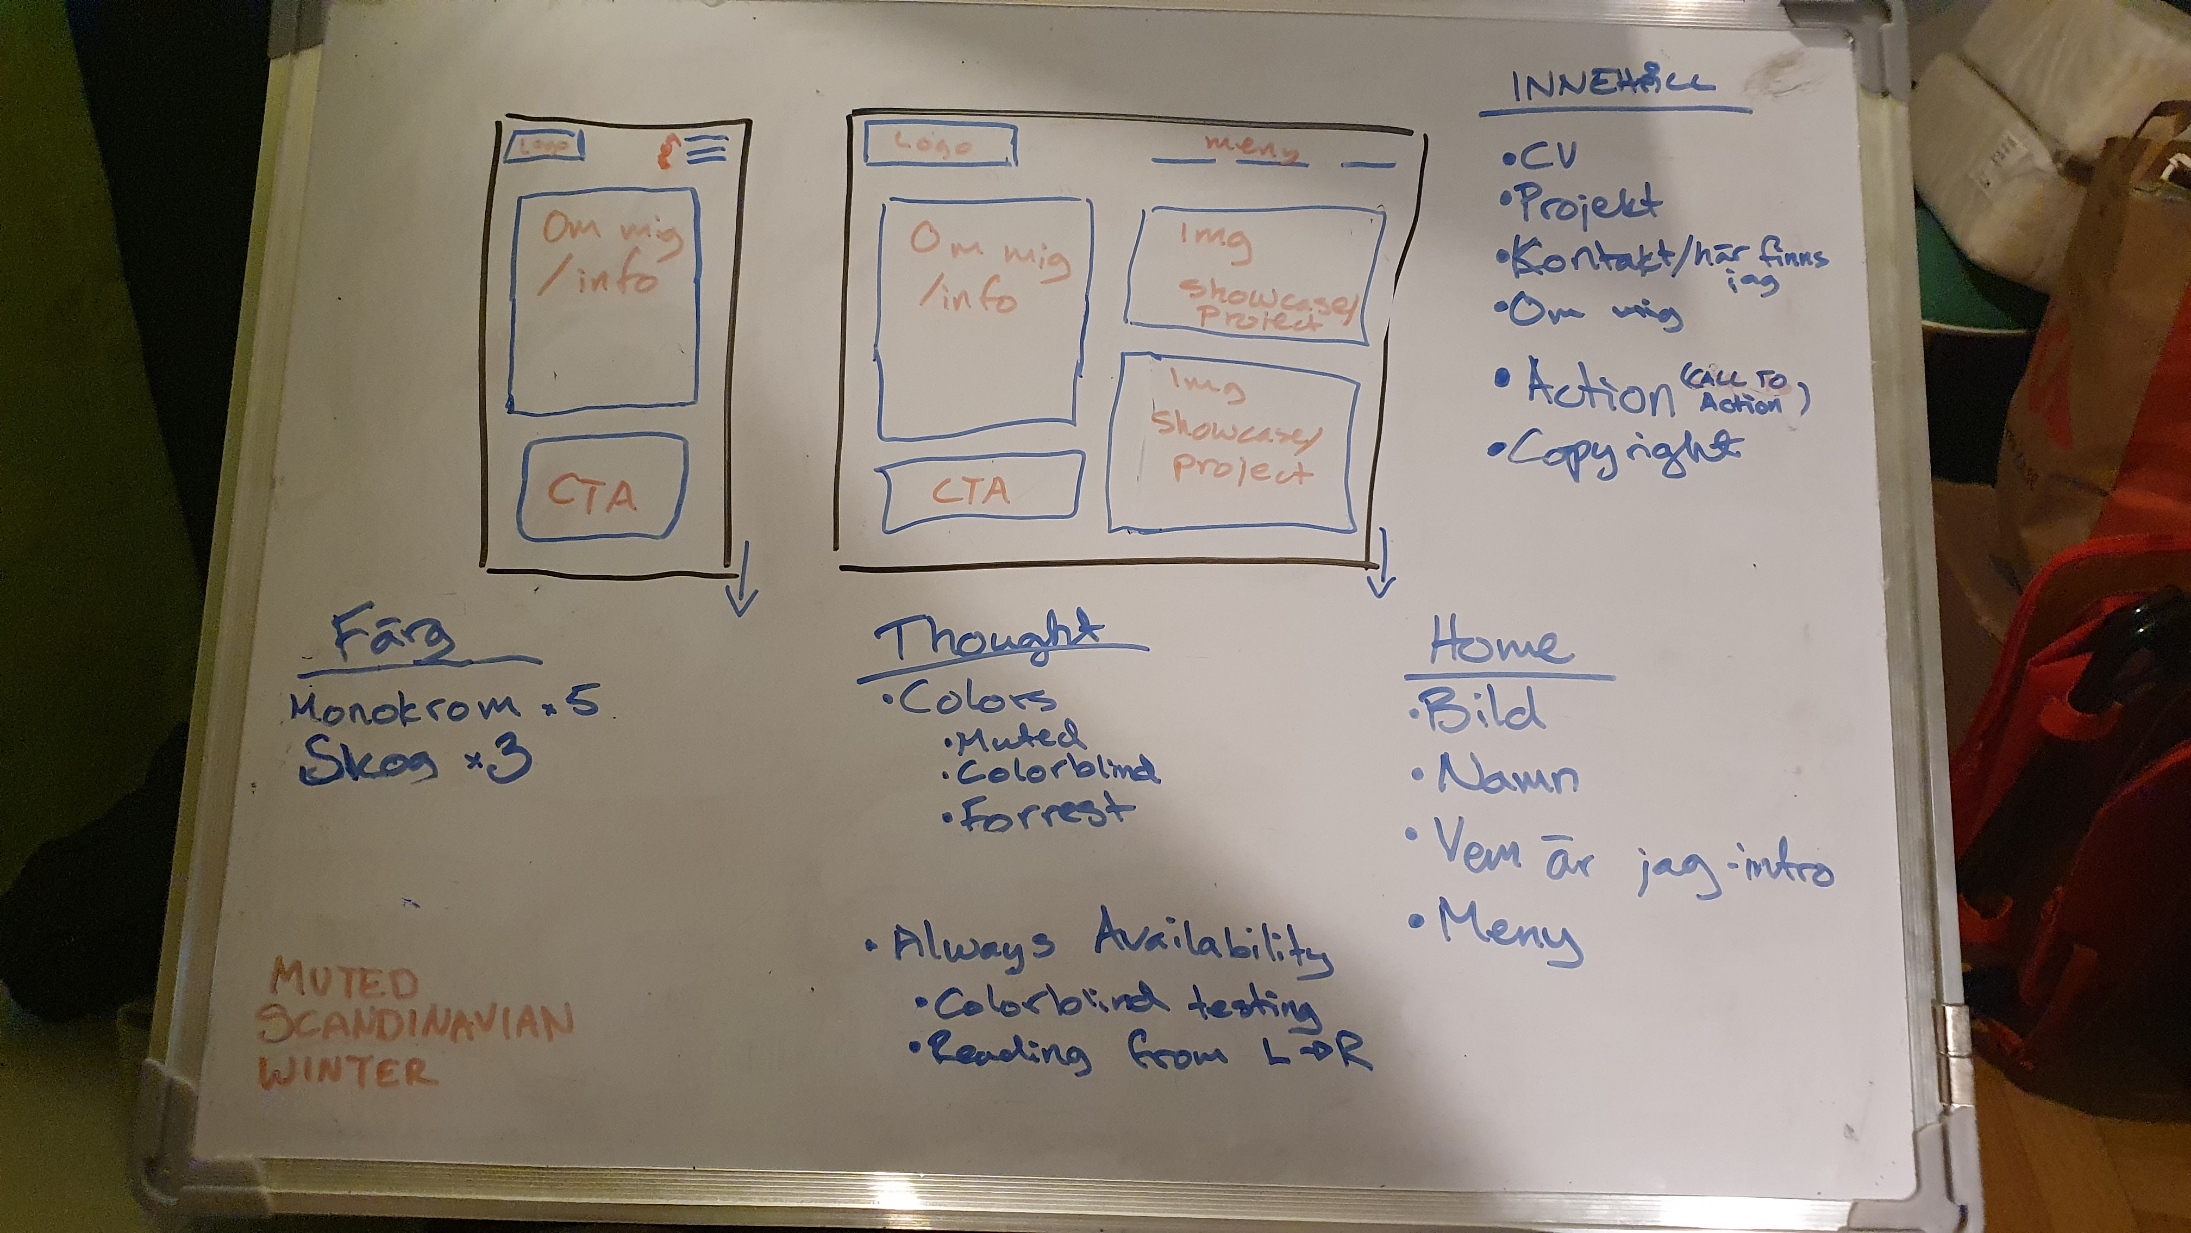 Logo
Om mig
/info
CTA
Logo
meny
Om mig
/info
CTA
Img
Showcase/
Project
Img
Showcase/
project
INNEHÅLL
•CV
•Projekt
•Kontakt/här finns
jag
•Om mig
•Action (CALL TO
Action)
•Copyright
Färg
Monokrom ×5
Skog ×3
MUTED
SCANDINAVIAN
WINTER
Thought
•Colors
•Muted
•Colorblind
•Forrest
•Always Availability
•Colorblind testing
•Reading from L→R
Home
•Bild
•Namn
•Vem är jag -intro
•Meny